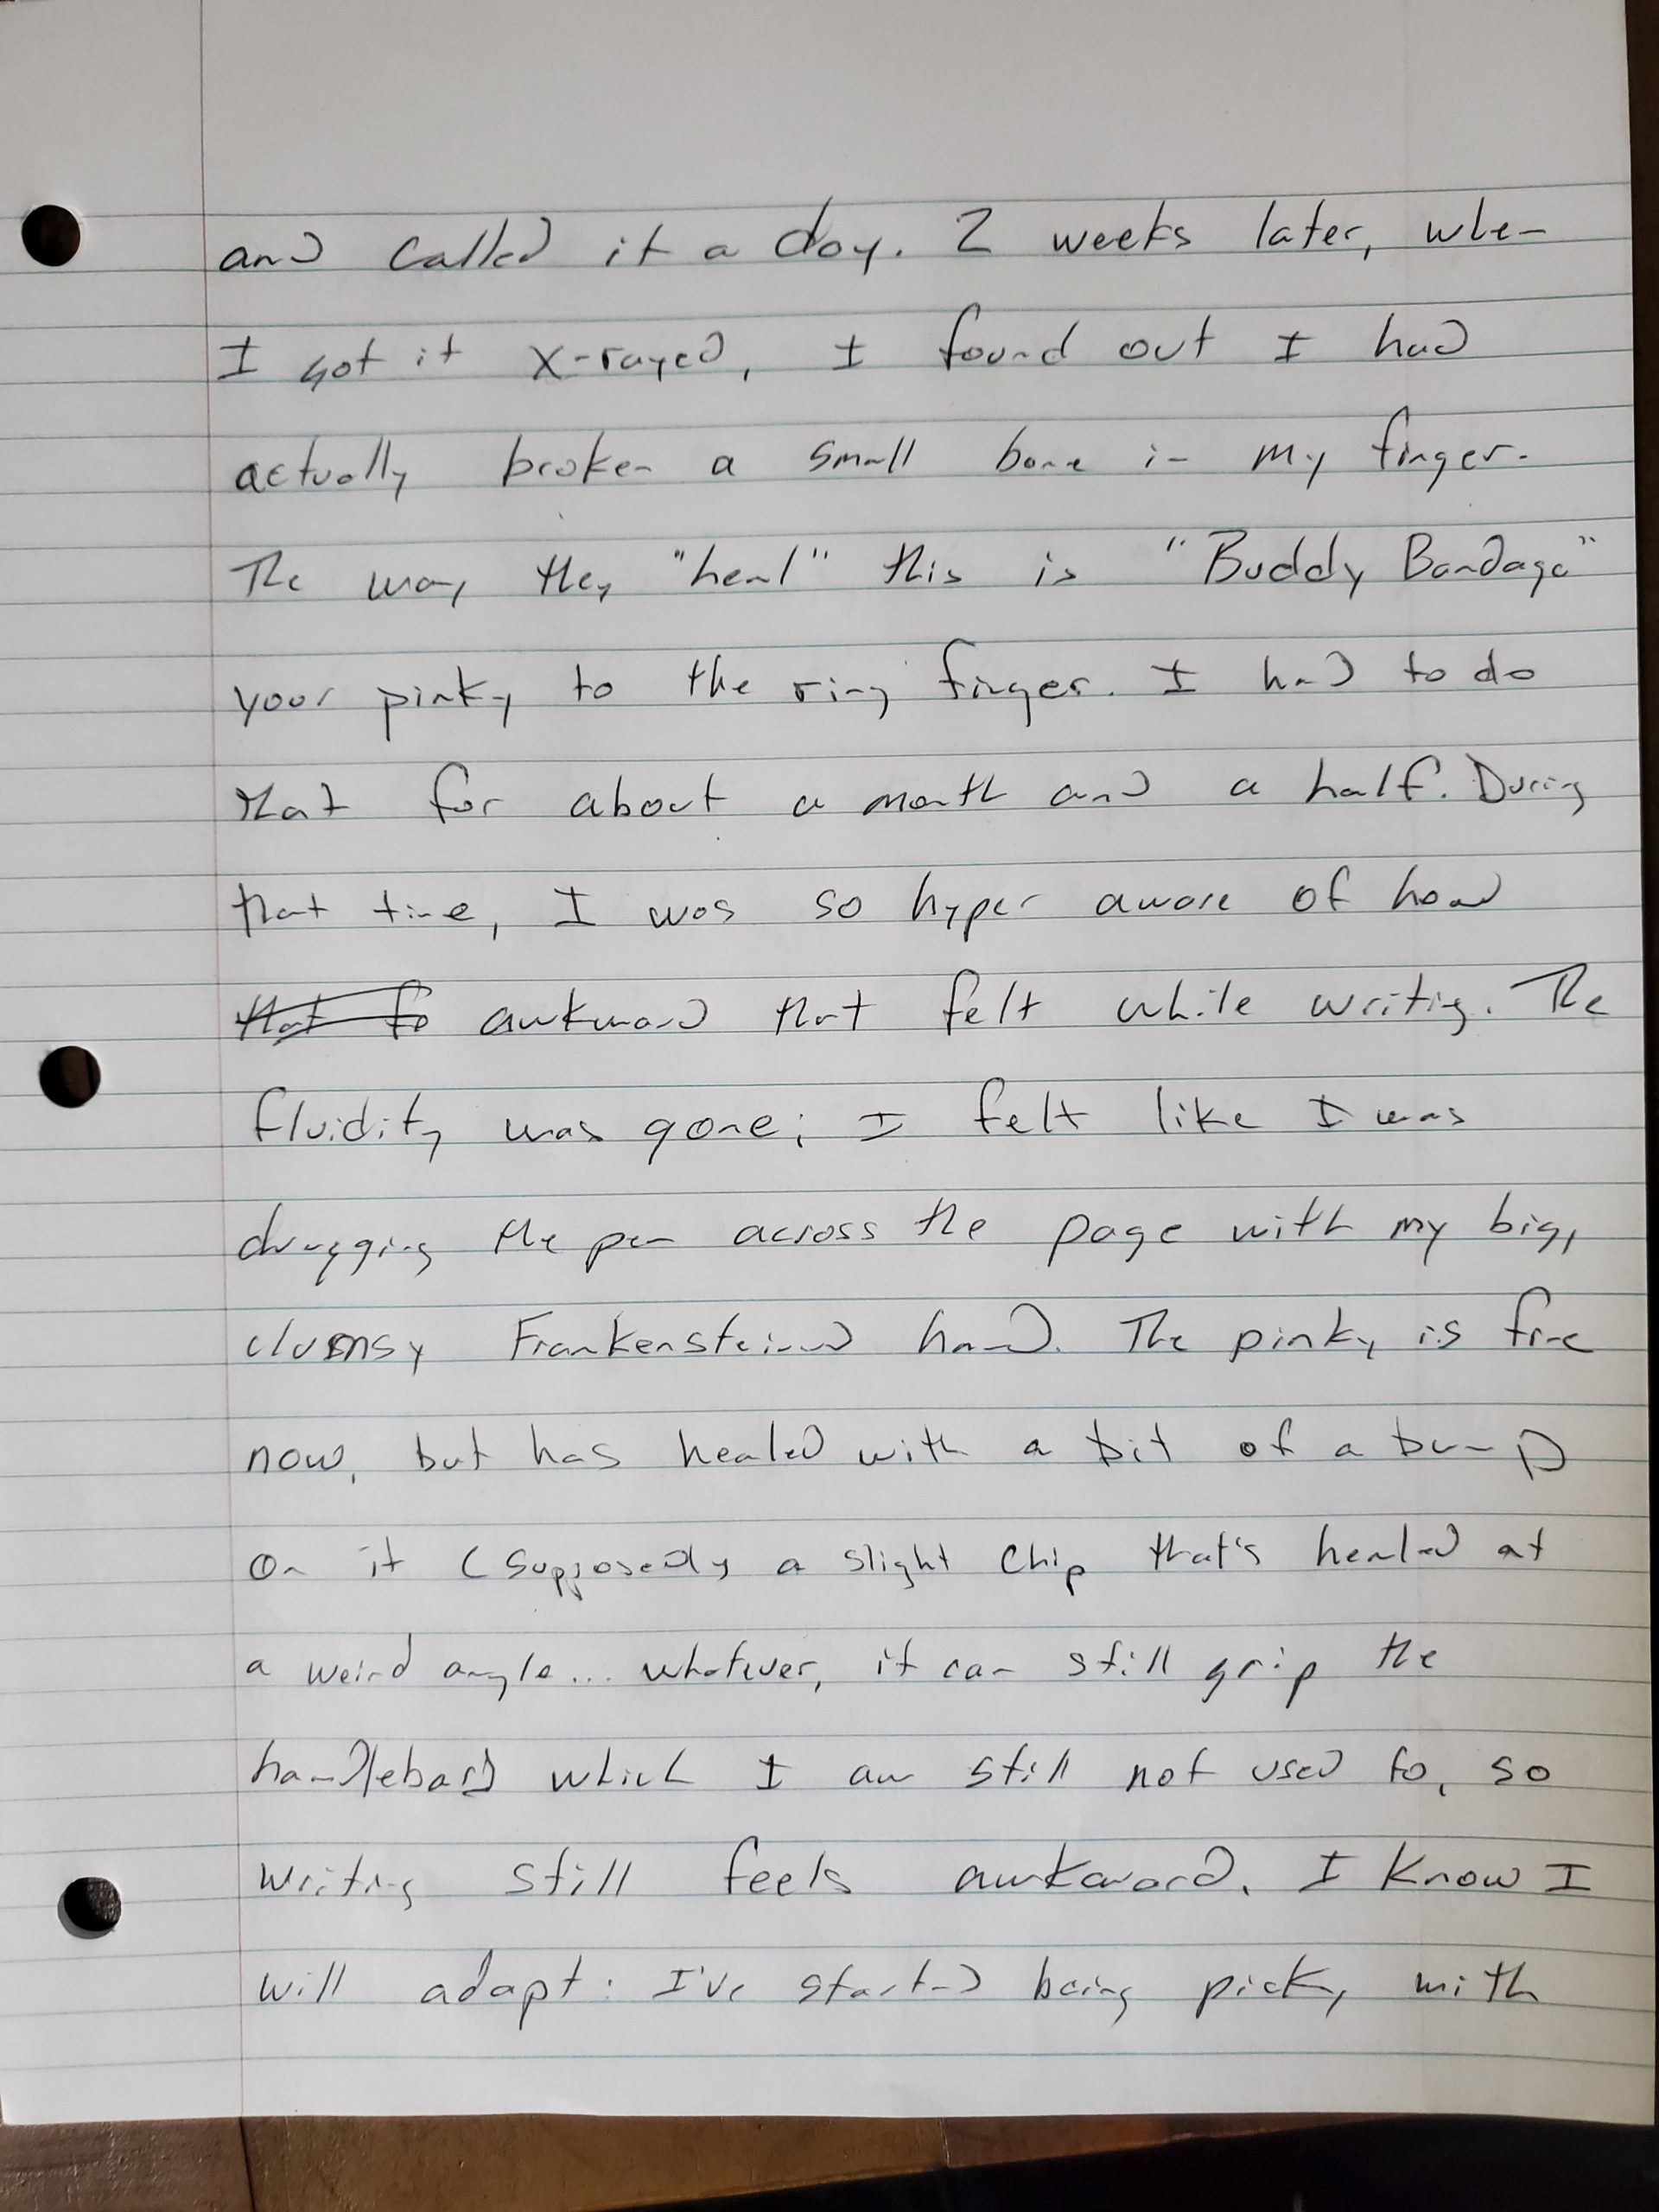 and called it a day. 2 weeks later, when
I got it x-rayed, I found out I had
actually broken a small bone in my finger.
The way they "heal" this is "Buddy Bandage"
your pinky to the ring finger. I had to do
that for about a month and a half. During
that time, I was so hyper aware of how
that fe awkward that felt while writing. The
fluidity was gone; I felt like I was
dragging the pen across the page with my big,
clumsy Frankensteined hand. The pinky is fine
now, but has healed with a bit of a bump
on it (supposedly a slight chip that's healed at
a weird angle... whatever, it can still grip the
handlebar) which I am still not used to, so
writing still feels awkward. I know I
will adapt: I've started being picky with